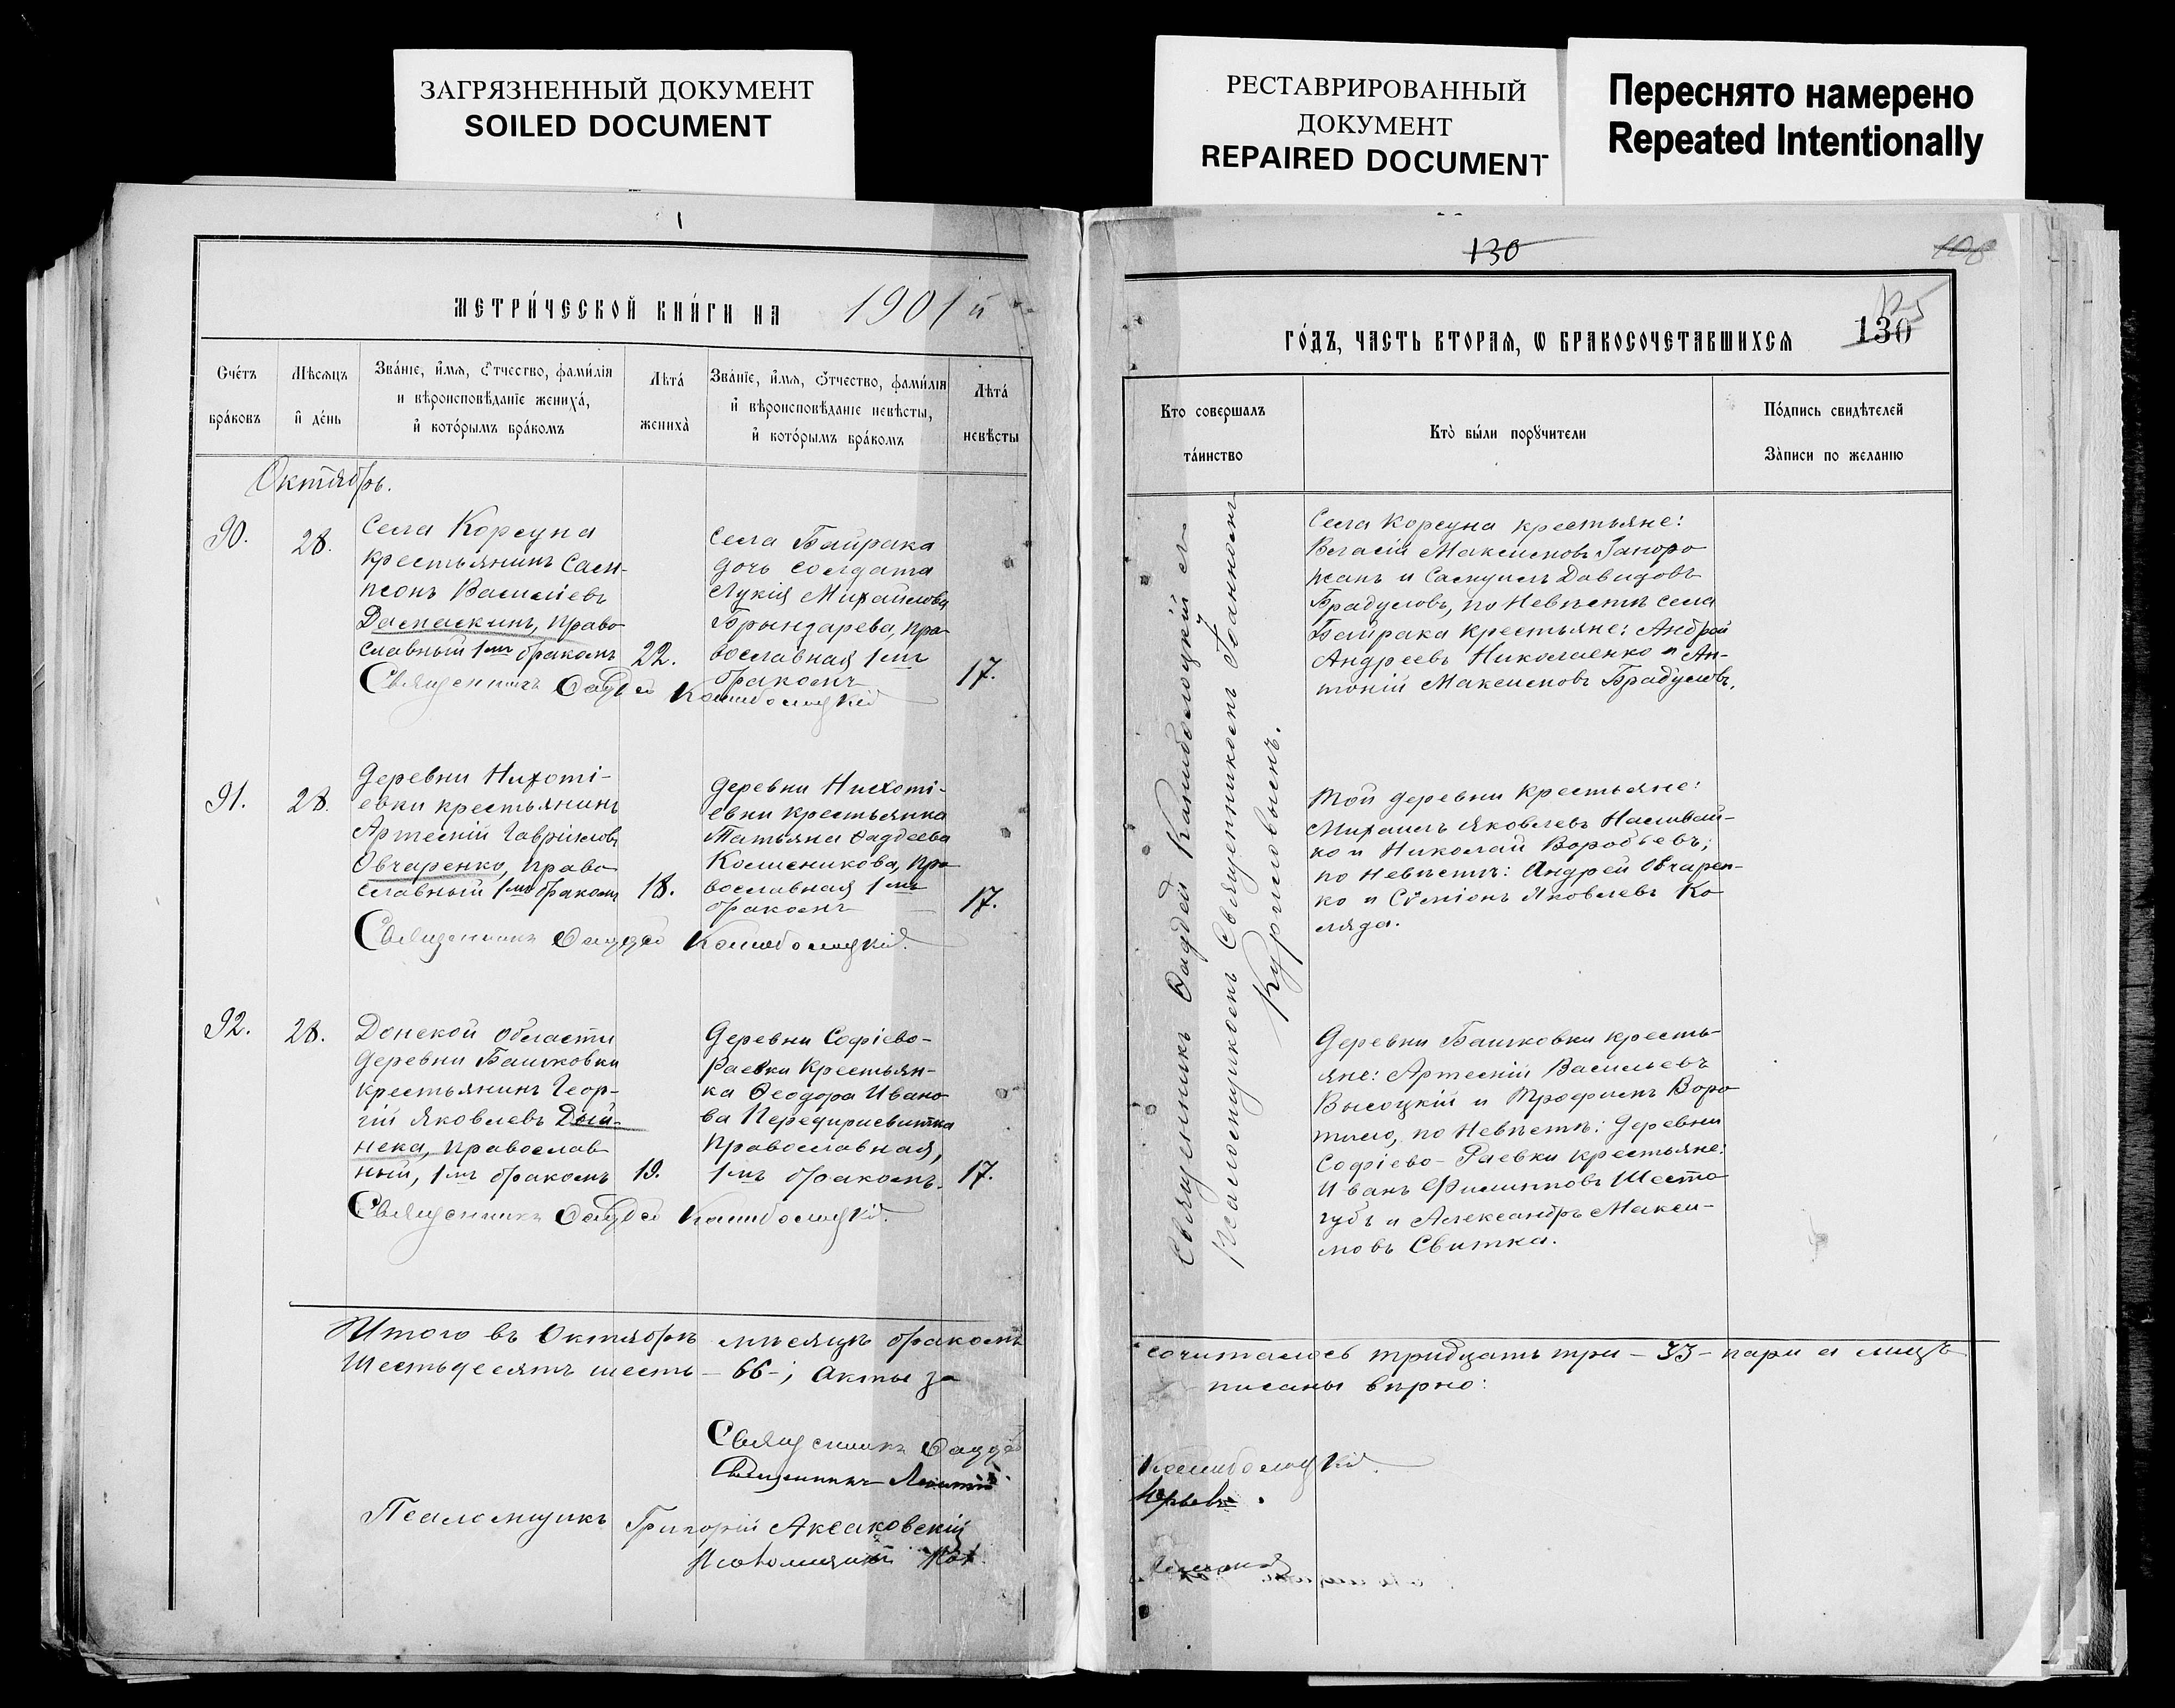 ЗАГРЯЗНЕННЫЙ ДОКУМЕНТ
SOILED DOCUMENT
РЕСТАВРИРОВАННЫЙ
ДОКУМЕНТ
REPAIRED DOCUMENT
Переснято намерено
Repeated Intentionally
МЕТРИ́ЧЕСКОЙ КНИ́ГИ НА 1901 й
Сче́тъ
бра́ковъ
Мѣ́сяцъ
и҆ де́нь
Зва́нїе, и҆́мѧ, ѻ҆́тчество, фами́лїѧ
и вѣроисповѣ́данїе жениха̀,
и҆ кото́рымъ бра́комъ
Лѣта̀
жениха̀
Зва́нїе, и҆́мѧ, ѻ҆́тчество, фами́лїѧ
и҆ вѣроисповѣ́данїе невѣ́сты,
и҆ кото́рымъ бра́комъ
Лѣта̀
невѣ́сты
Октябрь.
90.
28.
Села Корсуна
крестьянинъ Сам-
псонъ Василіевъ
Даспаскинъ, право
славный 1мъ бракомъ
22.
Села Байрака
дочь солдата
Лукія Михайлова
Брындарева, пра-
вославная 1мъ
бракомъ
17.
Священникъ Фаддей
91.
28.
Деревни Нихоті-
евки крестьянинъ
Артемій Гавріиловъ
Овчаренко, право
славный 1мъ бракомъ
18.
Деревни Нихоті-
евки крестьянка
Татьяна Фаддеева
Колесникова, пра
вославная 1мъ
бракомъ
17.
Священникъ Фаддей
92.
28.
Донской области
деревни Башковки
крестьянинъ Геор-
гій Яковлевъ Дой-
нека, православ
ный, 1мъ бракомъ
19.
Деревни Софіево-
Раевки крестьян-
ка Феодора Ивано
ва
Православная,
1мъ бракомъ.
17.
Священникъ Фаддей
Итого въ Октябрѣ мѣсяцѣ бракомъ
Шестьдесятъ шесть - 66 -; Акты за
Священникъ Фаддей
Священникъ
Псаломщикъ Григорій Аксаковскій
130
130
ГО́ДЪ, ЧА́СТЬ ВТОРА́Ѧ, Ѡ БРАКОСОЧЕТА́ВШИХСѦ
Кто соверша́лъ
та́инство
Кто̀ бы́ли порꙋчи́тели
По́дпись свидѣ́телей
За́писи по жела́нїю
Священникъ Фаддей
Псаломщикомъ Священникомъ Іоанномъ
Куриловымъ.
Села Корсуна крестьяне:
Власій Максимовъ Запоро
жанъ и Самуилъ Давидовъ
Брадуловъ, по невѣстѣ села
Байрака крестьяне: Андрей
Андреевъ Николаенко и Ан-
тоній Максимовъ Брадуловъ.
Той деревни крестьяне:
Михаилъ Яковлевъ Наливай-
ко и Николай Воробьевъ;
по невѣстѣ: Андрей Овчарен-
ко и Сѵмеонъ Яковлевъ Ко
ляда.
Деревни Башковки кресть-
яне: Артемій Васильевъ
Высоцкій и Трофимъ Воро
тило, по невѣстѣ: деревни
Софіево-Раевки крестьяне:
Иванъ Филипповъ Шесто
губъ и Александръ Макси-
мовъ Свитка.
сочиталось тридцать три - 33 - пары а лицъ
писаны вѣрно: